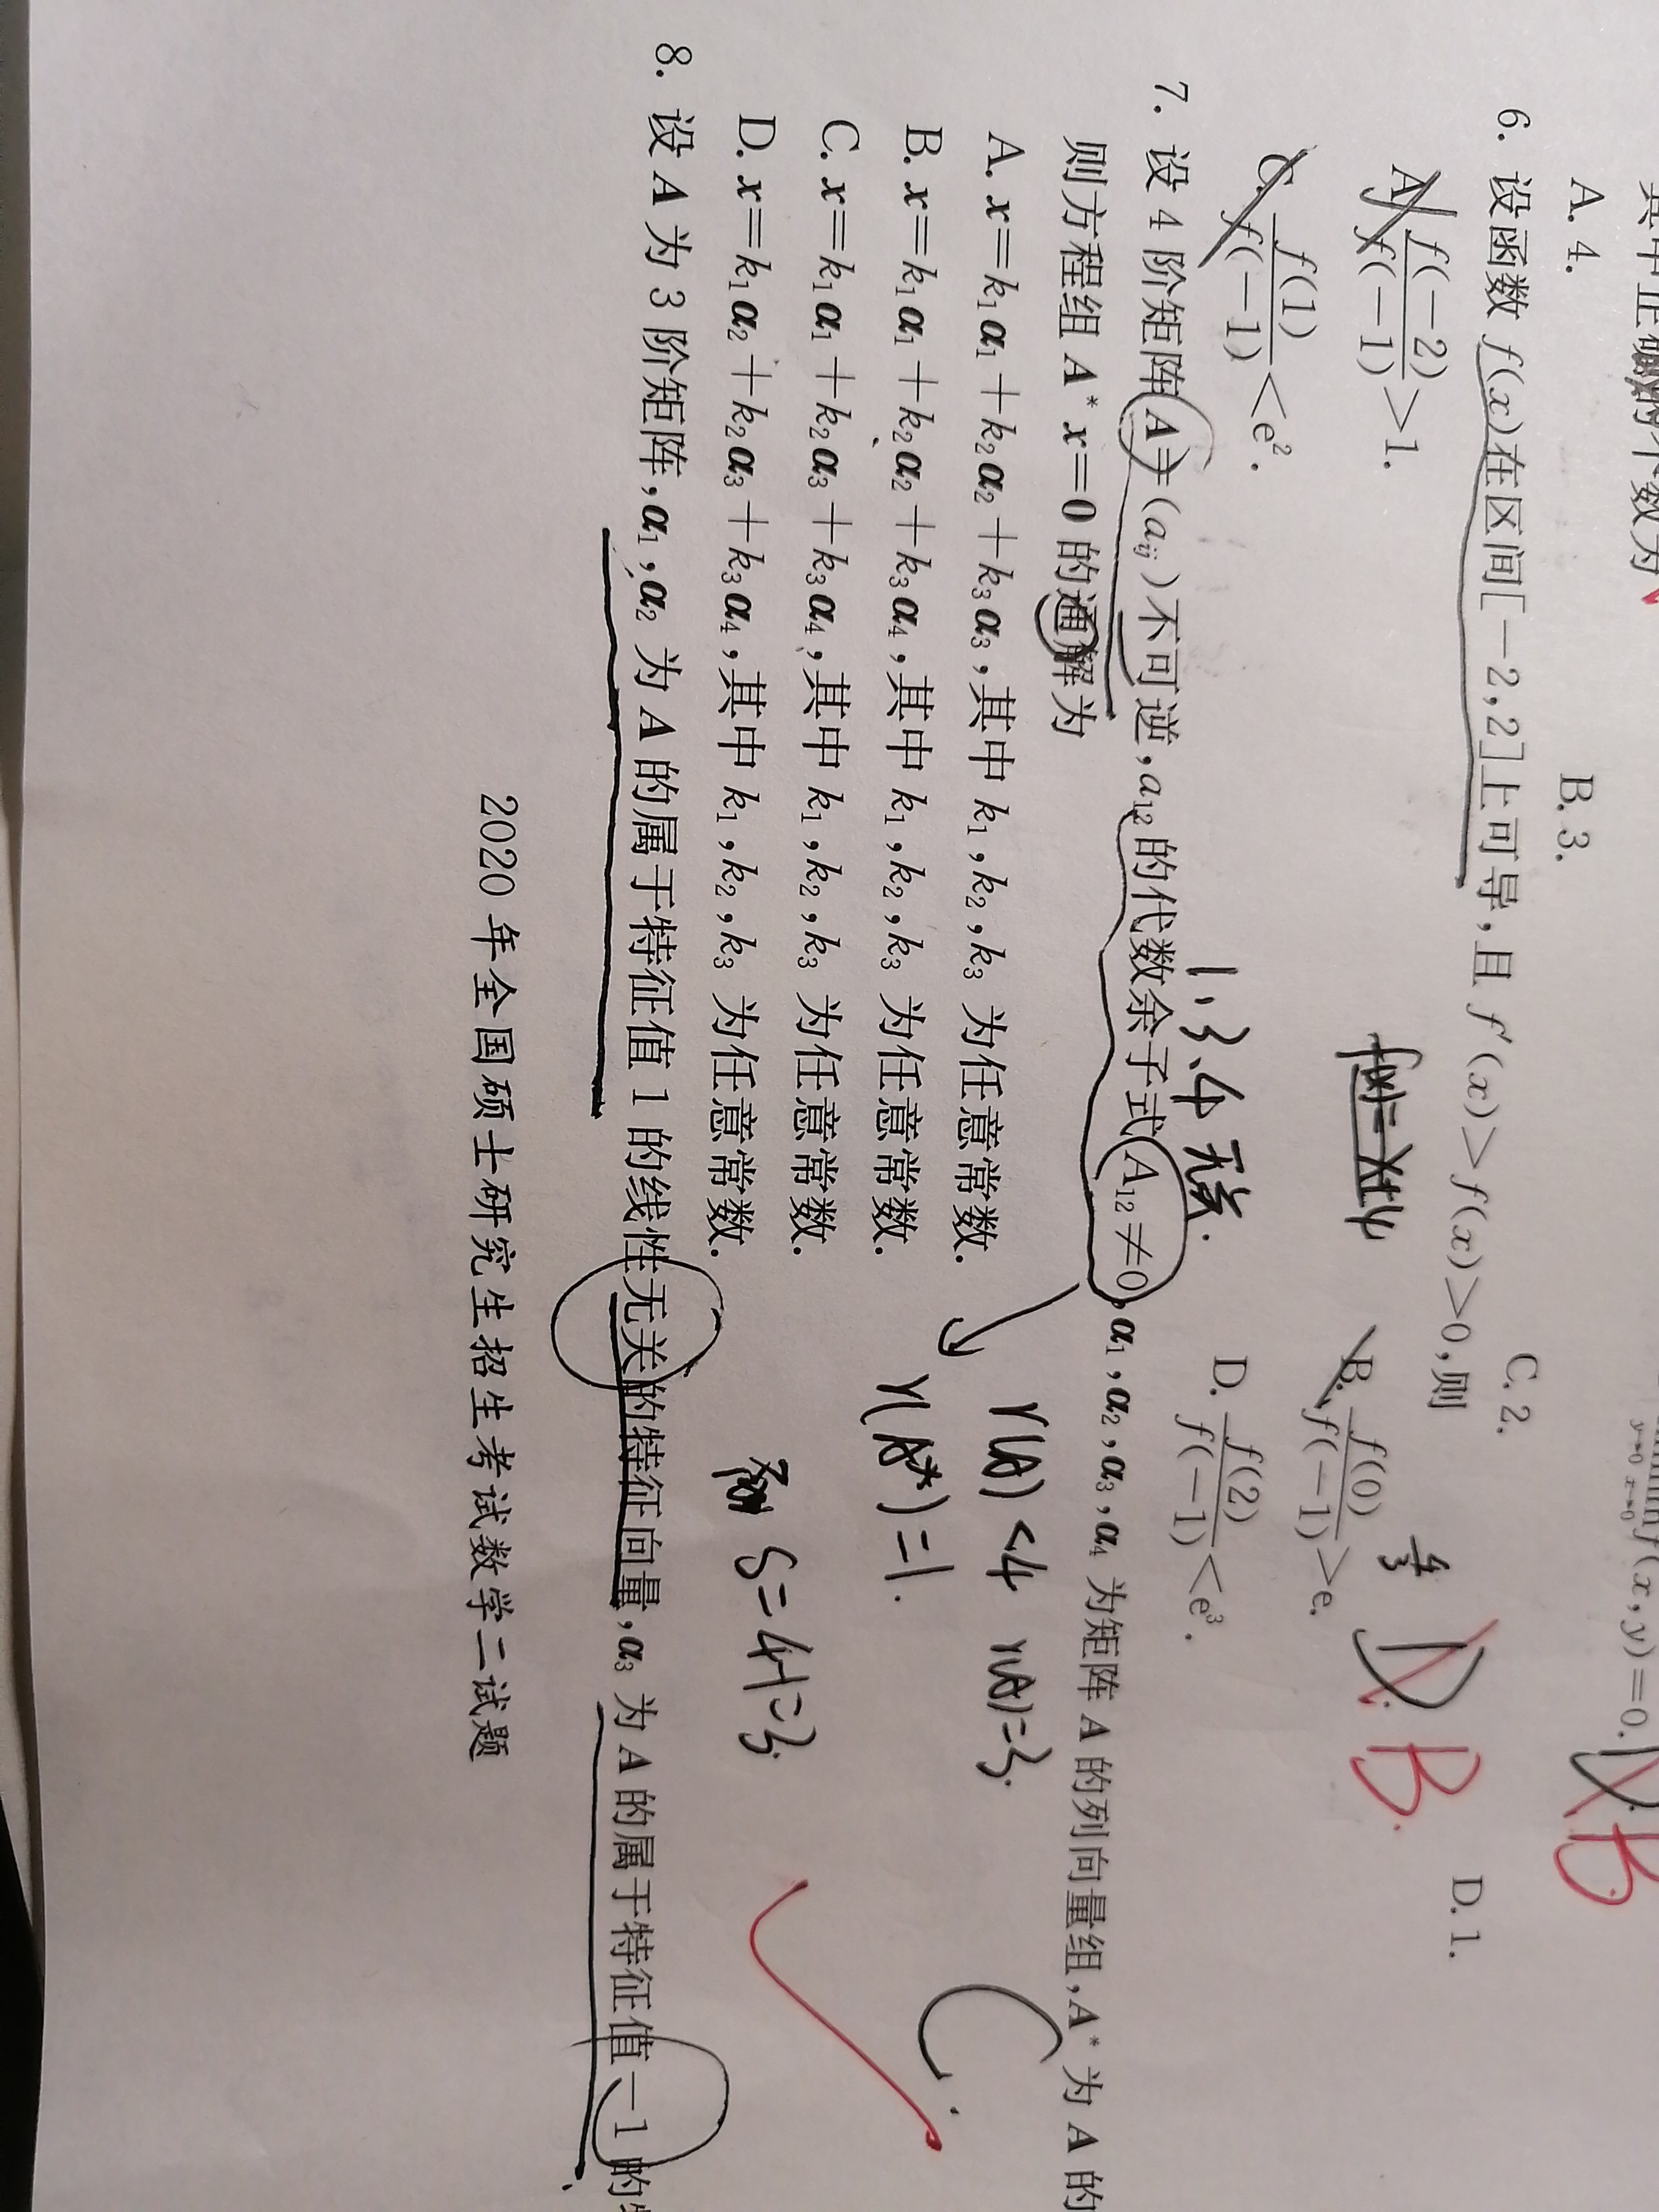 其中正确的个数为
A. 4.
B. 3.
C. 2.
D. 1.
B
6. 设函数 f(x)在区间[-2,2]上可导,且 f′(x)>f(x)>0,则
D
B.
A. f(-2)/f(-1)>1.
B. f(0)/f(-1)>e.
C. f(1)/f(-1)<e².
D. f(2)/f(-1)<e³.
1,3,4 无关.
7. 设 4 阶矩阵 A=(aᵢⱼ)不可逆,a₁₂的代数余子式 A₁₂≠0,α₁,α₂,α₃,α₄ 为矩阵 A 的列向量组,A* 为 A 的
则方程组 A*x=0 的通解为
A. x=k₁α₁+k₂α₂+k₃α₃,其中 k₁,k₂,k₃ 为任意常数.
r(A)<4 r(A)=3.
B. x=k₁α₁+k₂α₂+k₃α₄,其中 k₁,k₂,k₃ 为任意常数.
r(A*)=1.
C.
C. x=k₁α₁+k₂α₃+k₃α₄,其中 k₁,k₂,k₃ 为任意常数.
D. x=k₁α₂+k₂α₃+k₃α₄,其中 k₁,k₂,k₃ 为任意常数.
S=4-1=3.
8. 设 A 为 3 阶矩阵,α₁,α₂ 为 A 的属于特征值 1 的线性无关的特征向量,α₃ 为 A 的属于特征值-1 的
2020 年全国硕士研究生招生考试数学二试题